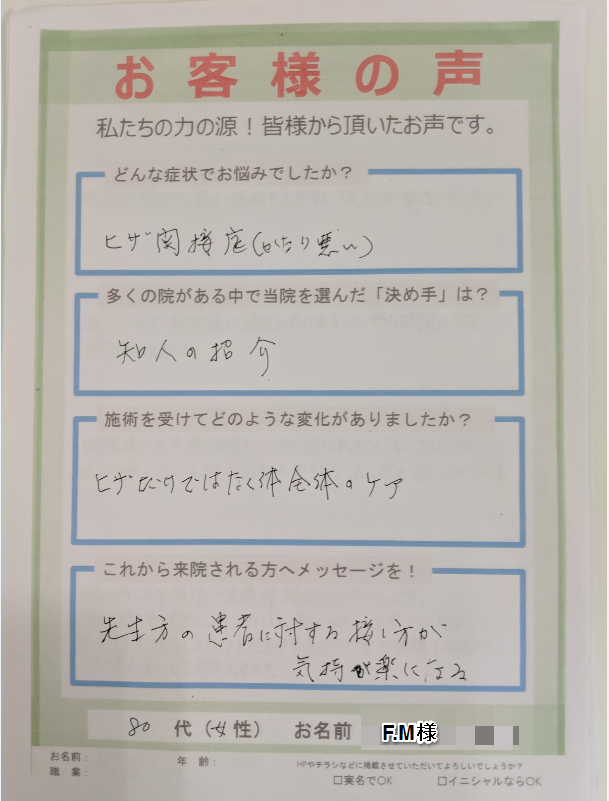 お客様の声
私たちの力の源！皆様から頂いたお声です。
どんな症状でお悩みでしたか？
ヒザ関接症(かたり悪い)
多くの院がある中で当院を選んだ「決め手」は？
知人の招介
施術を受けてどのような変化がありましたか？
ヒザだけではなく体全体のケア
これから来院される方へメッセージを！
先生方の患者に対する接し方が
気持が楽になる
80 代（女性） お名前 F.M様
お名前： 年齢： HPやチラシなどに掲載させていただいてよろしいでしょうか？
職業： □実名でOK □イニシャルならOK